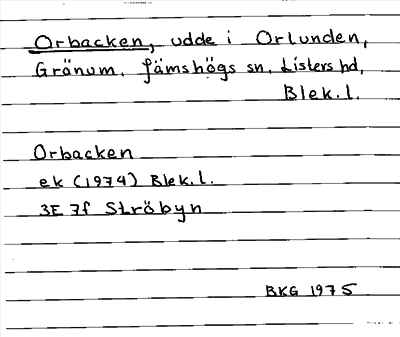 Orbacken, udde i Orlunden,
Gränum. Jämshögs sn. Listers hd,
Blek.l.
Orbacken
ek (1974) Blek.l.
3E 7f Ströbyn
BKG 1975